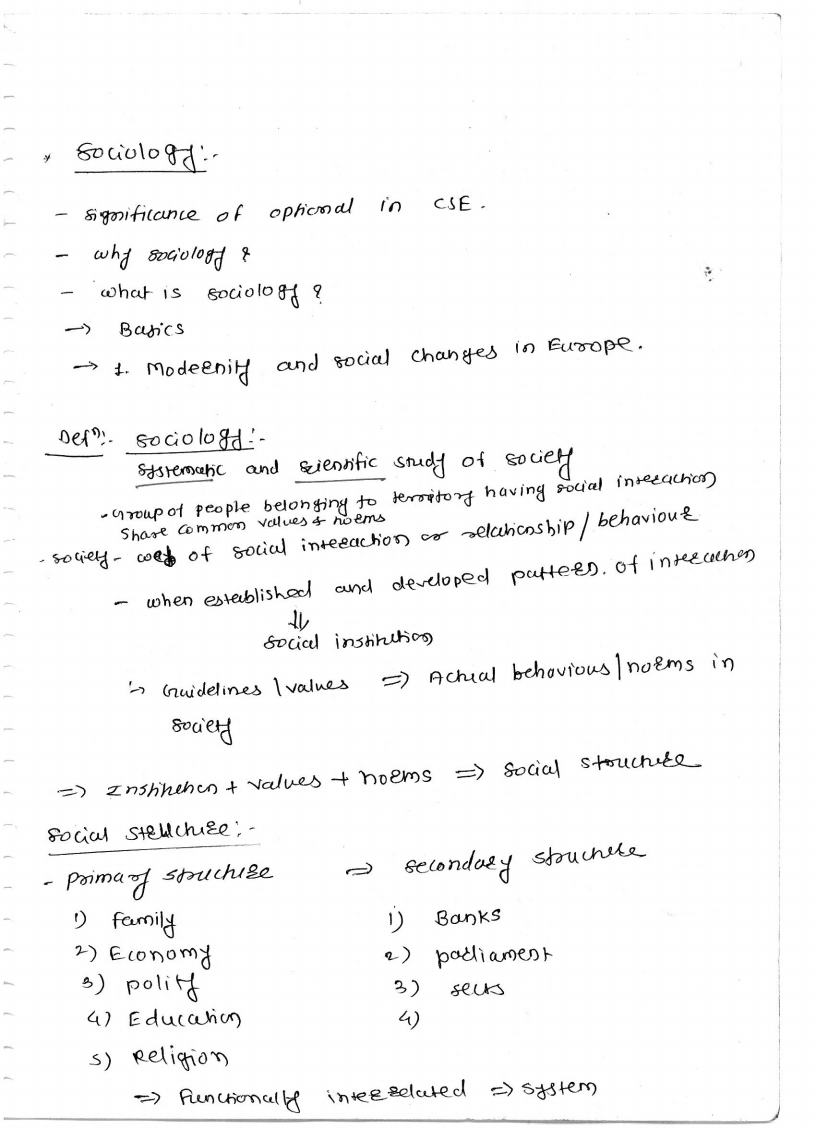 * Sociology:-
- Significance of optional in CSE.
- why sociology ?
- what is sociology ?
→ Basics
→ 1. Modernity and social changes in Europe.
Defn:- sociology:-
systematic and scientific study of society
- Group of people belonging to territory having social interaction
Share common values & norms
- society - web of social interaction or relationship / behaviour
- when established and developed pattern. of interaction
⇓
social institution
↳ Guidelines / values ⇒ Actual behaviour / norms in
society
⇒ Institution + values + norms ⇒ social structure
Social structure:-
- primary structure ⇒ secondary structure
1) family 1) Banks
2) Economy 2) parliament
3) polity 3) sects
4) Education 4)
5) Religion
⇒ functionally interrelated ⇒ system